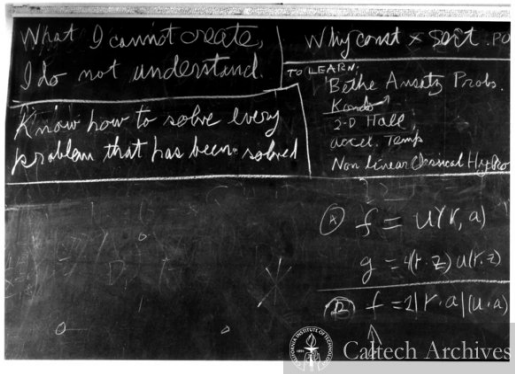 What I cannot create,
I do not understand.
Know how to solve every
problem that has been solved
Why const × sort .PO
TO LEARN:
Bethe Ansatz Probs.
Kondo
2-D Hall
accel. Temp
Non linear Classical Hydro
f = u(r, a)
g = 4(r·z) u(r, z)
f = 2|r·a|(u·a)
Caltech Archives